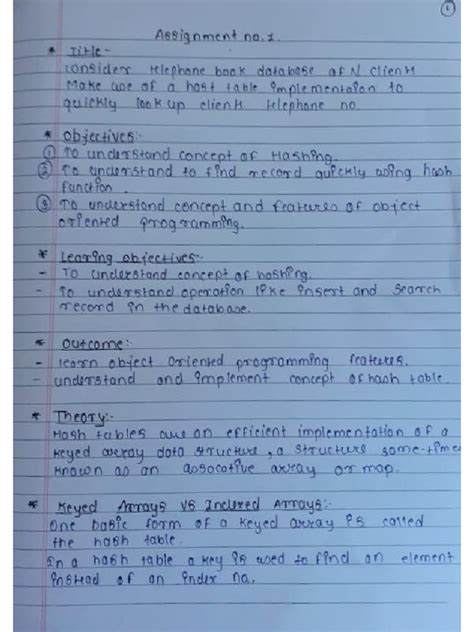 1
Assignment no. 1.
* Title -
Consider telephone book database of N clients
Make use of a hast table implementaion to
quickly look up clients telephone no.
* Objectives:-
① To understand concept of Hashing.
② To understand to find record quickly using hash
function.
③ To understand concept and features of object
oriented programming.
* Learing objectives:-
- To understand concept of hashing.
- To understand operation like insert and search
record in the database.
* Outcome:-
- learn object oriented programming features.
- understand and implement concept of hash table.
* Theory:-
Hash tables are an efficient implementation of a
keyed array data structure, a structure some-times
known as an assocative array or map.
* Keyed Arrays VS Indexed Arrays:-
One basic form of a keyed array is called
the hash table.
In a hash table a key is used to find an element
instead of an index no.